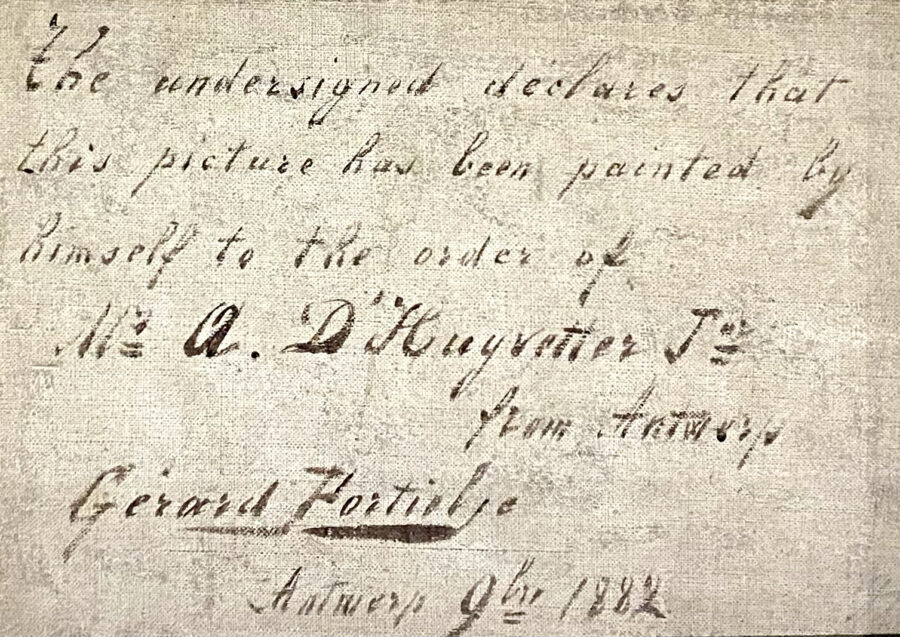 The undersigned declares that
this picture has been painted by
himself to the order of
Mr A. D'Huyvetter Jor
from Antwerp
Gérard Portielje
Antwerp 9bre 1882